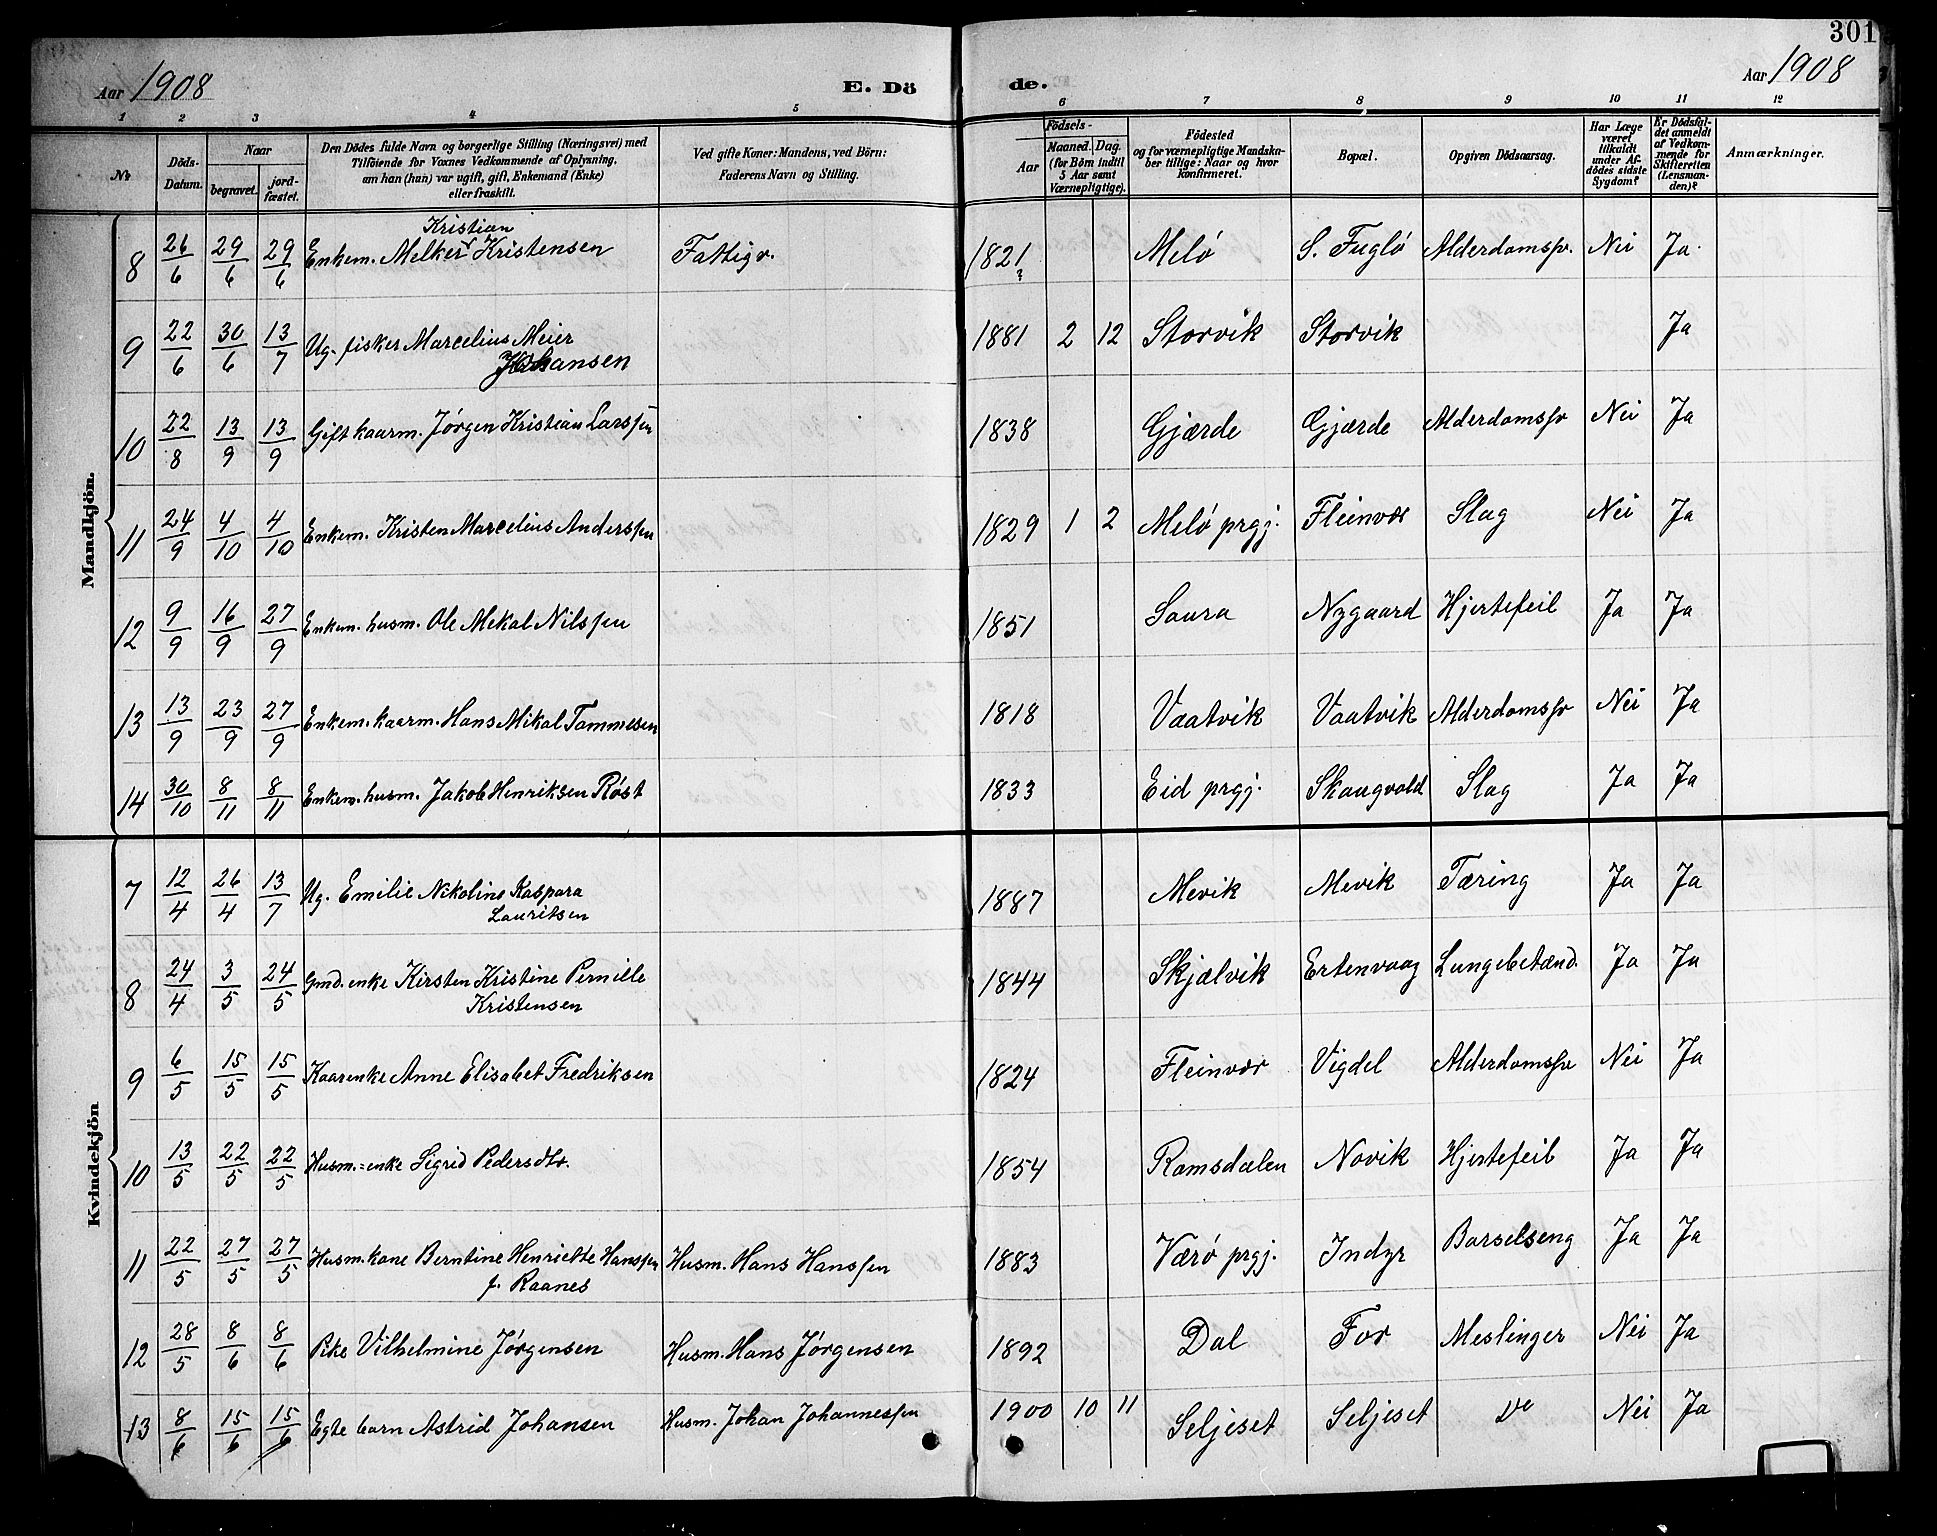 301
Aar 1908 E. Dö de. Aar 1908
1 2 3 4 5 6 7 8 9 10 11 12
No
Döds-Datum.
Naar
begravet.
jord-fæstet.
Den Dödes fulde Navn og borgerlige Stilling (Næringsvei) med
Tilföiende for Voxnes Vedkommende af Oplysning,
om han (hun) var ugift, gift, Enkemand (Enke)
eller fraskilt.
Ved gifte Koner: Mandens, ved Börn:
Faderens Navn og Stilling.
Födsels-
Aar
Maaned. Dag.
(for Börn indtil
5 Aar samt
Værnepligtige).
Födested
og for værnepligtige Mandska-
ber tillige: Naar og hvor
konfirmeret.
Bopæl.
Opgiven Dödsaarsag.
Har Læge
været
tilkaldt
under Af-
dödes sidste
Sygdom?
Er Dödsfal-
det anmeldt
af Vedkom-
mende for
Skifteretten
(Lensman-
den)?
Anmærkninger.
Mandkjön.
Kristian
8 26/6 29/6 29/6 Enkem. Melker Kristensen Fattigv. 1821 Melö S. Fuglö Alderdomssv. Nei Ja.
?
9 22/6 30/6 13/7 Ug. fisker Marcelius Meier 1881 2 12 Storvik Storvik Ja
Johansen
10 22/8 13/9 13/9 Gift kaarm. Jörgen Kristian Larssen 1838 Gjærde Gjærde Alderdomssv Nei Ja
11 24/9 4/10 4/10 Enkem. Kristen Marcelius Anderssen 1829 1 2 Melö prgj. Fleinvær Slag Nei Ja
12 9/9 16/9 27/9 Enkem. husm. Ole Mekal Nilssen 1851 Saura Nygaard Hjertefeil Ja Ja
13 13/9 23/9 27/9 Enkem. kaarm. Hans Mikal Tommesen 1818 Vaatvik Vaatvik Alderdomssv Nei Ja
14 30/10 8/11 8/11 Enkem. husm. Jakob Henriksen Röst 1833 Eid prgj. Skaugvold Slag Ja Ja
Kvindekjön
7 12/4 26/4 13/7 Ug. Emilie Nikoline Kaspara 1887 Mevik Mevik Tæring Ja Ja
Lauritsen
8 24/4 3/5 24/5 Gmd. enke Kirsten Kristine Pernille 1844 Skjælvik Ertenvaag Lungebetænd. Ja Ja
Kristensen
9 6/5 15/5 15/5 Kaarenke Anne Elisabet Fredriksen 1824 Fleinvær Vigdel Alderdomssv Nei Ja
10 13/5 22/5 22/5 Husm.=enke Sigrid Pedersdtr. 1854 Ramsdalen Novik Hjertefeil Ja Ja
11 22/5 27/5 27/5 Husm. kone Berntine Henriette Hanssen Husm. Hans Hanssen 1883 Værö prgj. Indyr Barselseng Ja Ja
f. Raanes
12 28/5 8/6 8/6 Pike Vilhelmine Jörgensen Husm. Hans Jörgensen 1892 Dal For Meslinger Nei Ja
13 8/6 15/6 15/6 Egte barn Astrid Johansen Husm. Johan Johannessen 1900 10 11 Seljeset Seljeset Do Nei Ja